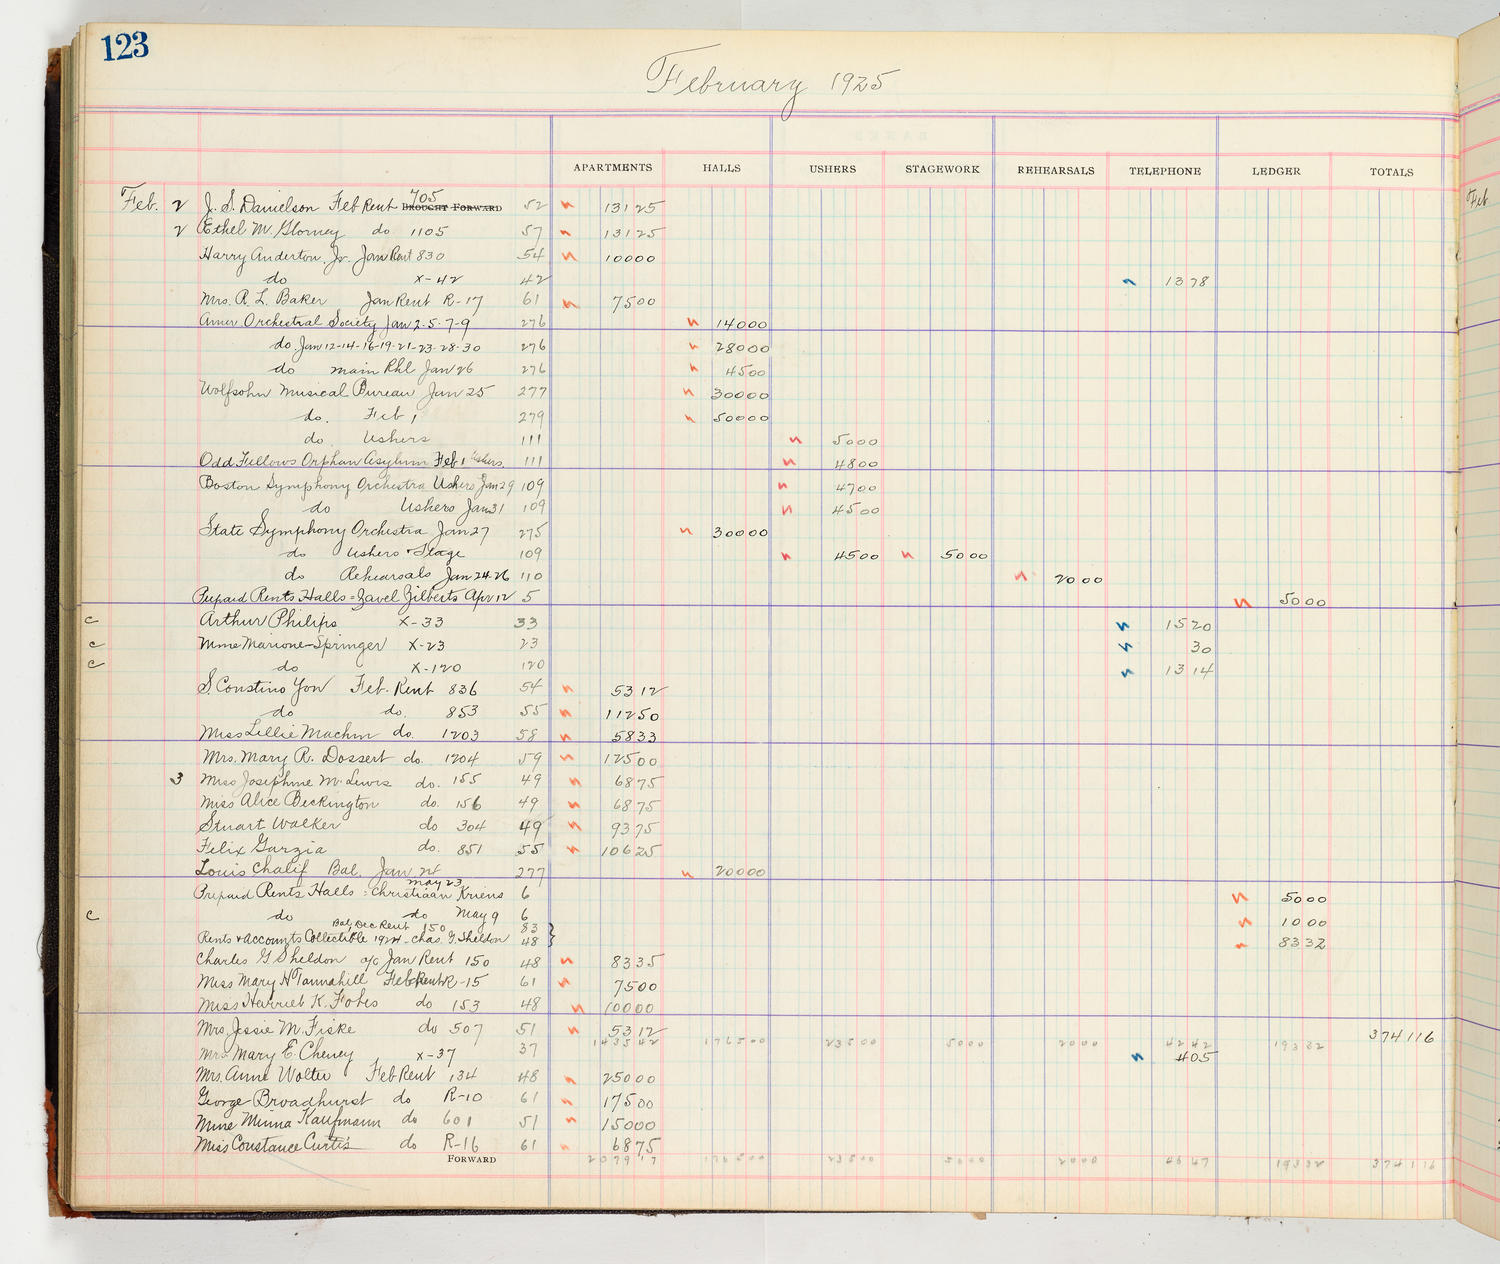 123
February 1925
APARTMENTS HALLS USHERS STAGEWORK REHEARSALS TELEPHONE LEDGER TOTALS
Feb. 2 J. S. Danielson Feb Rent 705 BROUGHT FORWARD 52 131 25
2 Ethel M. Glorney do 1105 57 131 25
Harry Anderton, Jr. Jan Rent 830 54 100 00
do X-42 42 13 78
Mrs. A. L. Baker Jan Rent R-17 61 75 00
Amer. Orchestral Society Jan 2-5-7-9 276 140 00
do. Jan 12-14-16-19-21-23-28-30 276 280 00
do main Rhl Jan 26 276 45 00
Wolfsohn Musical Bureau Jan 25 277 300 00
do. Feb 1 279 500 00
do Ushers 111 50 00
Odd Fellows Orphan Asylum Feb 1 Ushers. 111 48 00
Boston Symphony Orchestra Ushers Jan 29 109 47 00
do Ushers Jan 31 109 45 00
State Symphony Orchestra Jan 27 275 300 00
do Ushers + Stage 109 45 00 50 00
do Rehearsals Jan 24-26 110 20 00
Prepaid Rents Halls = Zavel Zilberts Apr 12 5 50 00
c Arthur Philips X-33 33 15 20
c Mme Marione-Springer X-23 23 30
c do X-120 120 13 14
S. Constino Yon Feb. Rent 836 54 53 12
do do. 853 55 112 50
Miss Lillie Machin do. 1203 58 58 33
Mrs. Mary R. Dossert do. 1204 59 125 00
3 Miss Josephine M. Lewis do. 155 49 68 75
Miss Alice Beckington do. 156 49 68 75
Stuart Walker do 304 49 93 75
Felix Garzia do. 851 55 106 25
Louis Chalif Bal. Jan 277 200 00
May 23
Prepaid Rents Halls = Christiaan Kriens 6 50 00
c do do May 9 6 10 00
Bal. Dec Rent 150 83
Rents & Accounts Collectible 1924 - Chas. G. Sheldon 48 83 32
Charles G Sheldon a/c Jan Rent 150 48 83 35
Miss Mary H Tannahill Feb Rent R-15 61 75 00
Miss Harriet K. Fobes do 153 48 100 00
Mrs. Jessie M. Fiske do 507 51 53 12 3741 16
1435 42 1765 00 235 00 50 00 20 00 42 42 193 32
Mrs. Mary E. Cheney X-37 37 4 05
Mrs. Anne Wolter Feb Rent 134 48 250 00
George Broadhurst do R-10 61 175 00
Mme Minna Kaufmann do 601 51 150 00
Miss Constance Curtis do R-16 61 68 75
FORWARD 2079 17 1765 00 235 00 50 00 20 00 46 47 193 32 3741 16
Feb